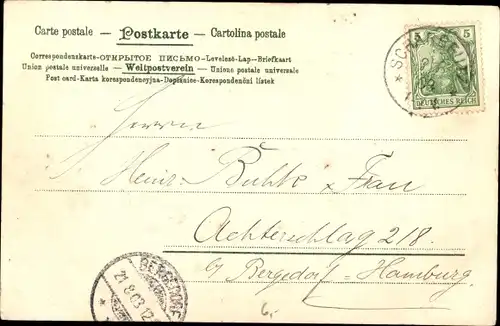 Carte postale — Postkarte — Cartolina postale
Correspondenskarte-ОТКРЫТОЕ ПИСЬМО-Levelező-Lap-Briefkaart
Union postale universelle — Weltpostverein — Unione postale universale
Post card-Karta korespondencyjna-Dopisnice-Korespondenční lístek
5 5
DEUTSCHES REICH
Herrn
Heinr. Buhk & Frau
Achterschlag 218
b/ Bergedorf-Hamburg
BERGEDORF
21.8.03.12
6,-